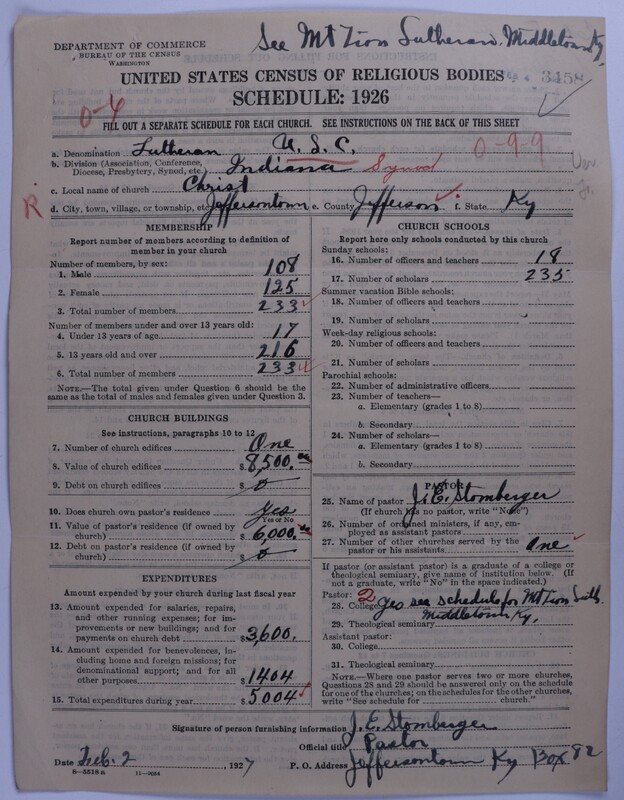 See Mt Zion Lutheran. Middletown Ky.
DEPARTMENT OF COMMERCE
BUREAU OF THE CENSUS
WASHINGTON
3458
UNITED STATES CENSUS OF RELIGIOUS BODIES
SCHEDULE: 1926
0-4
FILL OUT A SEPARATE SCHEDULE FOR EACH CHURCH. SEE INSTRUCTIONS ON THE BACK OF THIS SHEET
a. Denomination Lutheran U. S. C. 0-99
b. Division (Association, Conference, Diocese, Presbytery, Synod, etc.) Indiana Synod
c. Local name of church Christ
R
d. City, town, village, or township, etc. Jeffersontown e. County Jefferson f. State Ky
MEMBERSHIP
Report number of members according to definition of
member in your church
Number of members, by sex:
1. Male 108
2. Female 125
3. Total number of members 233
Number of members under and over 13 years old:
4. Under 13 years of age 17
5. 13 years old and over 216
6. Total number of members 233
NOTE.—The total given under Question 6 should be
the same as the total of males and females given under Question 3.
CHURCH BUILDINGS
See instructions, paragraphs 10 to 12
7. Number of church edifices One
8. Value of church edifices $8,500.
9. Debt on church edifices $0
10. Does church own pastor's residence? Yes
Yes or No
11. Value of pastor's residence (if owned by
church) $6,000.
12. Debt on pastor's residence (if owned by
church) $0
EXPENDITURES
Amount expended by your church during last fiscal year
13. Amount expended for salaries, repairs,
and other running expenses; for im-
provements or new buildings; and for
payments on church debt $3,600.
14. Amount expended for benevolences, in-
cluding home and foreign missions; for
denominational support; and for all
other purposes $1404
15. Total expenditures during year $5004
CHURCH SCHOOLS
Report here only schools conducted by this church
Sunday schools:
16. Number of officers and teachers 18
17. Number of scholars 235
Summer vacation Bible schools:
18. Number of officers and teachers
19. Number of scholars
Week-day religious schools:
20. Number of officers and teachers
21. Number of scholars
Parochial schools:
22. Number of administrative officers
23. Number of teachers—
a. Elementary (grades 1 to 8)
b. Secondary
24. Number of scholars—
a. Elementary (grades 1 to 8)
b. Secondary
PASTOR
25. Name of pastor J. E. Stomberger
(If church has no pastor, write "None")
26. Number of ordained ministers, if any, em-
ployed as assistant pastors
27. Number of other churches served by the
pastor or his assistants One
If pastor (or assistant pastor) is a graduate of a college or
theological seminary, give name of institution below. (If
not a graduate, write "No" in the space indicated.)
Pastor: 2
28. College Yes see schedule for Mt Zion Luth.
Middletown Ky.
29. Theological seminary
Assistant pastor:
30. College
31. Theological seminary
NOTE.—Where one pastor serves two or more churches,
Questions 28 and 29 should be answered only on the schedule
for one of the churches; on the schedules for the other churches,
write "See schedule for church."
Signature of person furnishing information J. E. Stomberger
Official title Pastor
Date Feb. 2, 1927 P. O. Address Jeffersontown Ky Box 82
8—5518 a 11—9054